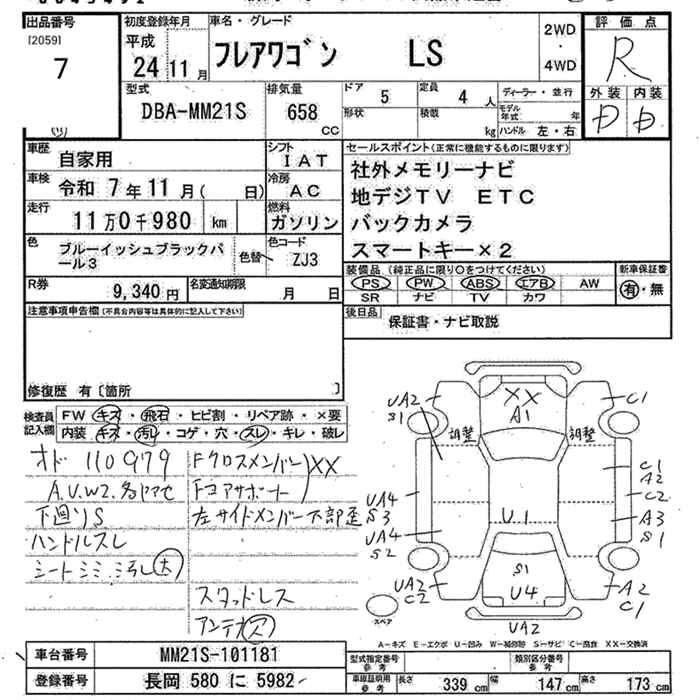 出品番号
[2059]
7
初度登録年月
平成
24 11月
車名・グレード
フレアワゴン LS
2WD
・
4WD
評価点
R
外装 内装
D D
型式
DBA-MM21S
排気量
658 CC
ドア 5
定員 4 人
形状
積載 kg
ディーラー・並行
モデル年式 年
ハンドル 左・右
車歴 自家用
シフト IAT
車検 令和 7年11月( 日)
冷房 AC
走行 11万0千980 km
燃料 ガソリン
色 ブルーイッシュブラックパール3
色替
色コード ZJ3
R券 9,340 円
名変通知期限 月 日
セールスポイント(正常に機能するものに限ります)
社外メモリーナビ
地デジTV ETC
バックカメラ
スマートキー×2
装備品(純正品に限り○をつけてください)
PS PW ABS エアB AW
SR ナビ TV カワ
新車保証書
有・無
後日品 保証書・ナビ取説
注意事項申告欄(不具合内容等は具体的に記入して下さい)
修復歴 有〔箇所 〕
検査員記入欄
FW キズ・飛石・ヒビ割・リペア跡・×要
内装 キズ・汚れ・コゲ・穴・スレ・キレ・破レ
オド 110979
A.U.W2.
下回りS
ハンドルスレ
シートシミ 汚レ大
Fクロスメンバー XX
Fコアサポート
左サイドメンバー下部歪
スタッドレス
アンテナ ス
UA2
S1
XX
A1
C1
調整
調整
UA4
S3
UA4
S2
C1
A2
C2
A3
S1
U1
S1
U4
UA2
C2
A2
C1
UA2
スペア
A-キズ E-エクボ U-凹み W-補修跡 S-サビ C-腐食 XX-交換済
車台番号 MM21S-101181
登録番号 長岡 580 に 5982
型式指定番号 参考
類別区分番号 参考
車庫証明用 参考
長さ 339 cm
幅 147 cm
高さ 173 cm